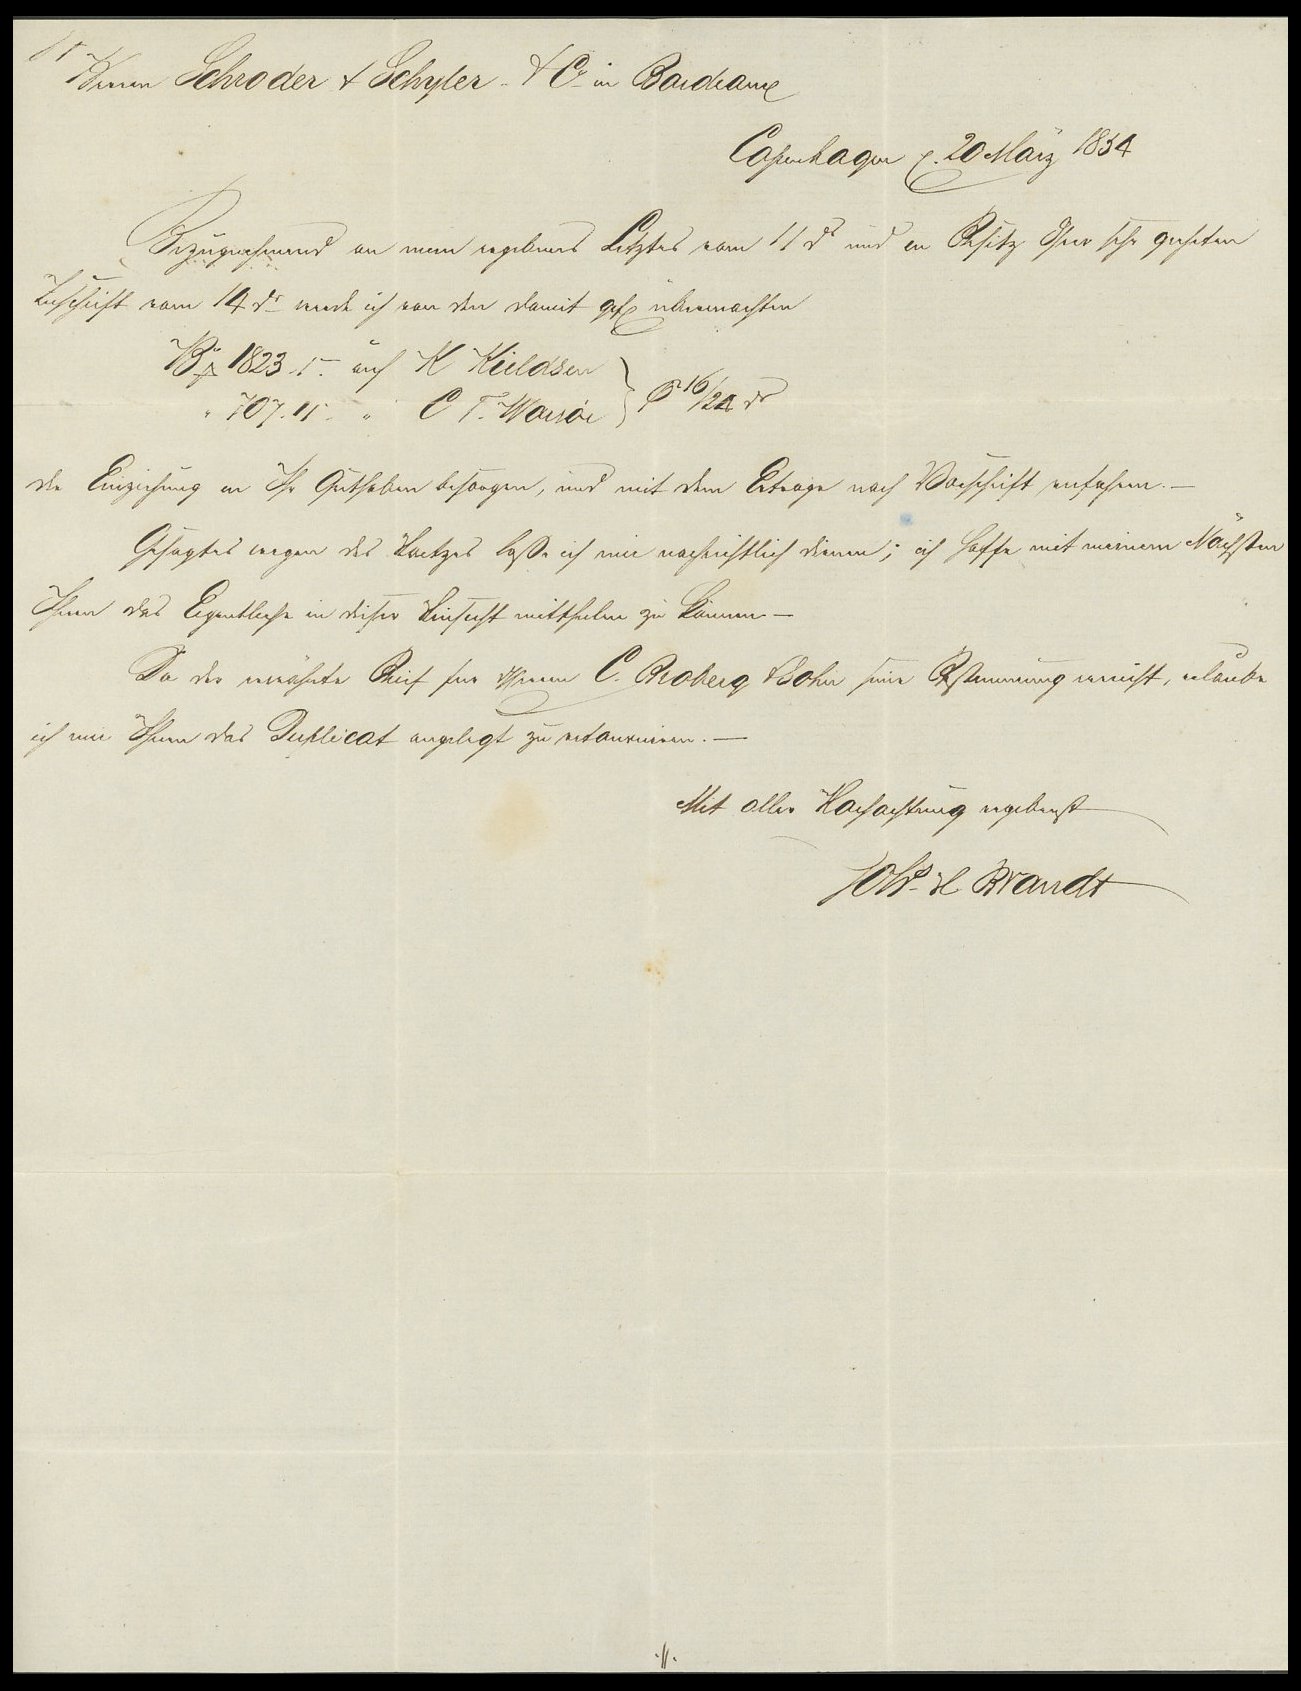 Herren Schröder & Schyler & Co in Bordeaux
Copenhagen d. 20 März 1854
Bezugnehmend an mein ergebenes Letztes vom 11 ds und im Besitz Ihrer sehr geehrten
Zuschrift vom 14 ds werde ich von den damit gefl übermachten
1823. auf K Kieldsen
" 707. 11. " C T. Warsöe } 16/24 ds
die Einziehung in Ihr Guthaben besorgen, und mit dem Ertrage nach Vorschrift verfahren. —
Gesagtes wegen des Harzes lasse ich mir nachrichtlich dienen; ich hoffe mit meinem Nächsten
Ihnen das Eigentliche in dieser Hinsicht mittheilen zu können —
Da der erwähnte Brief für Herren C. Broberg & Sohn seine Bestimmung erreicht, erlaube
ich mir Ihnen das Duplicat angelegt zu retourniren. —
Mit aller Hochachtung ergebenst
Johs. H Brandt